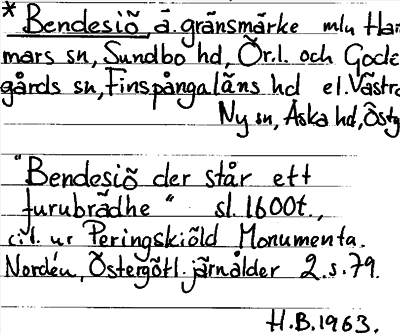 * Bendesiö ä. gränsmärke mln Ham
mars sn, Sundbo hd, Ör.l. och Gode
gårds sn, Finspångaläns hd el. Västra
Ny sn, Aska hd, Östg
"Bendesiö der står ett
furubrädhe" sl. 1600t.,
cit. ur Peringskiöld Monumenta.
Nordén, Östergötl. järnålder 2. s. 79.
H.B. 1963.